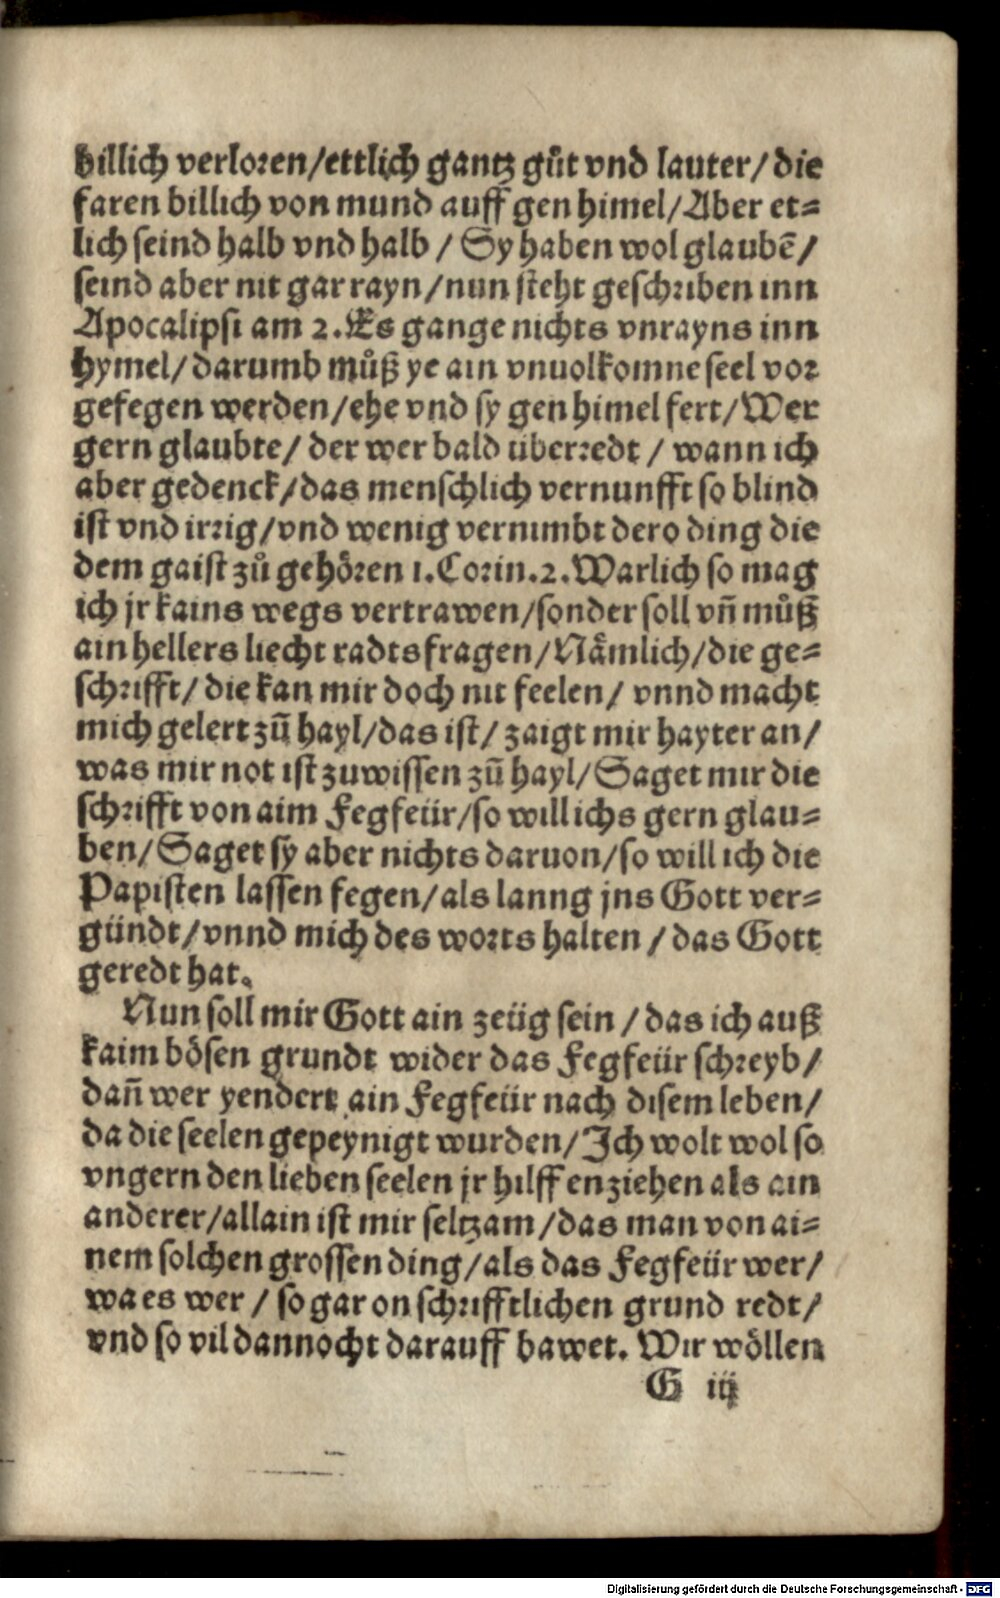 billich verloren/ettlich gantz gůt vnd lauter/die
faren billich von mund auff gen himel/Aber et=
lich seind halb vnd halb / Sy haben wol glaubē/
seind aber nit gar rayn/nun steht geschriben inn
Apocalipsi am 2. Es gange nichts vnrayns inn
hymel/darumb můß ye ain vnuolkomne seel vor
gefegen werden/ehe vnd sy gen himel fert/Wer
gern glaubte/ der wer bald überredt / wann ich
aber gedenck/das menschlich vernunfft so blind
ist vnd irrig/vnd wenig vernimbt dero ding die
dem gaist zů gehören 1. Corin. 2. Warlich so mag
ich jr kains wegs vertrawen/sonder soll vñ můß
ain hellers liecht radts fragen/Nämlich/die ge=
schrifft/die kan mir doch nit feelen/ vnnd macht
mich gelert zů hayl/das ist/ zaigt mir hayter an/
was mir not ist zuwissen zů hayl/Saget mir die
schrifft von aim Fegfeür/so will ichs gern glau=
ben/Saget sy aber nichts daruon/so will ich die
Papisten lassen fegen/als lanng jns Gott ver=
gündt/vnnd mich des worts halten / das Gott
geredt hat.
Nun soll mir Gott ain zeüg sein / das ich auß
kaim bösen grundt wider das Fegfeür schreyb/
dañ wer yendert ain Fegfeür nach disem leben/
da die seelen gepeynigt wurden/Ich wolt wol so
vngern den lieben seelen jr hilff enziehen als ain
anderer/allain ist mir seltzam/das man von ai=
nem solchen grossen ding/als das Fegfeür wer/
wa es wer / so gar on schrifftlichen grund redt/
vnd so vil dannocht darauff bawet. Wir wöllen
G iij
Digitalisierung gefördert durch die Deutsche Forschungsgemeinschaft - DFG